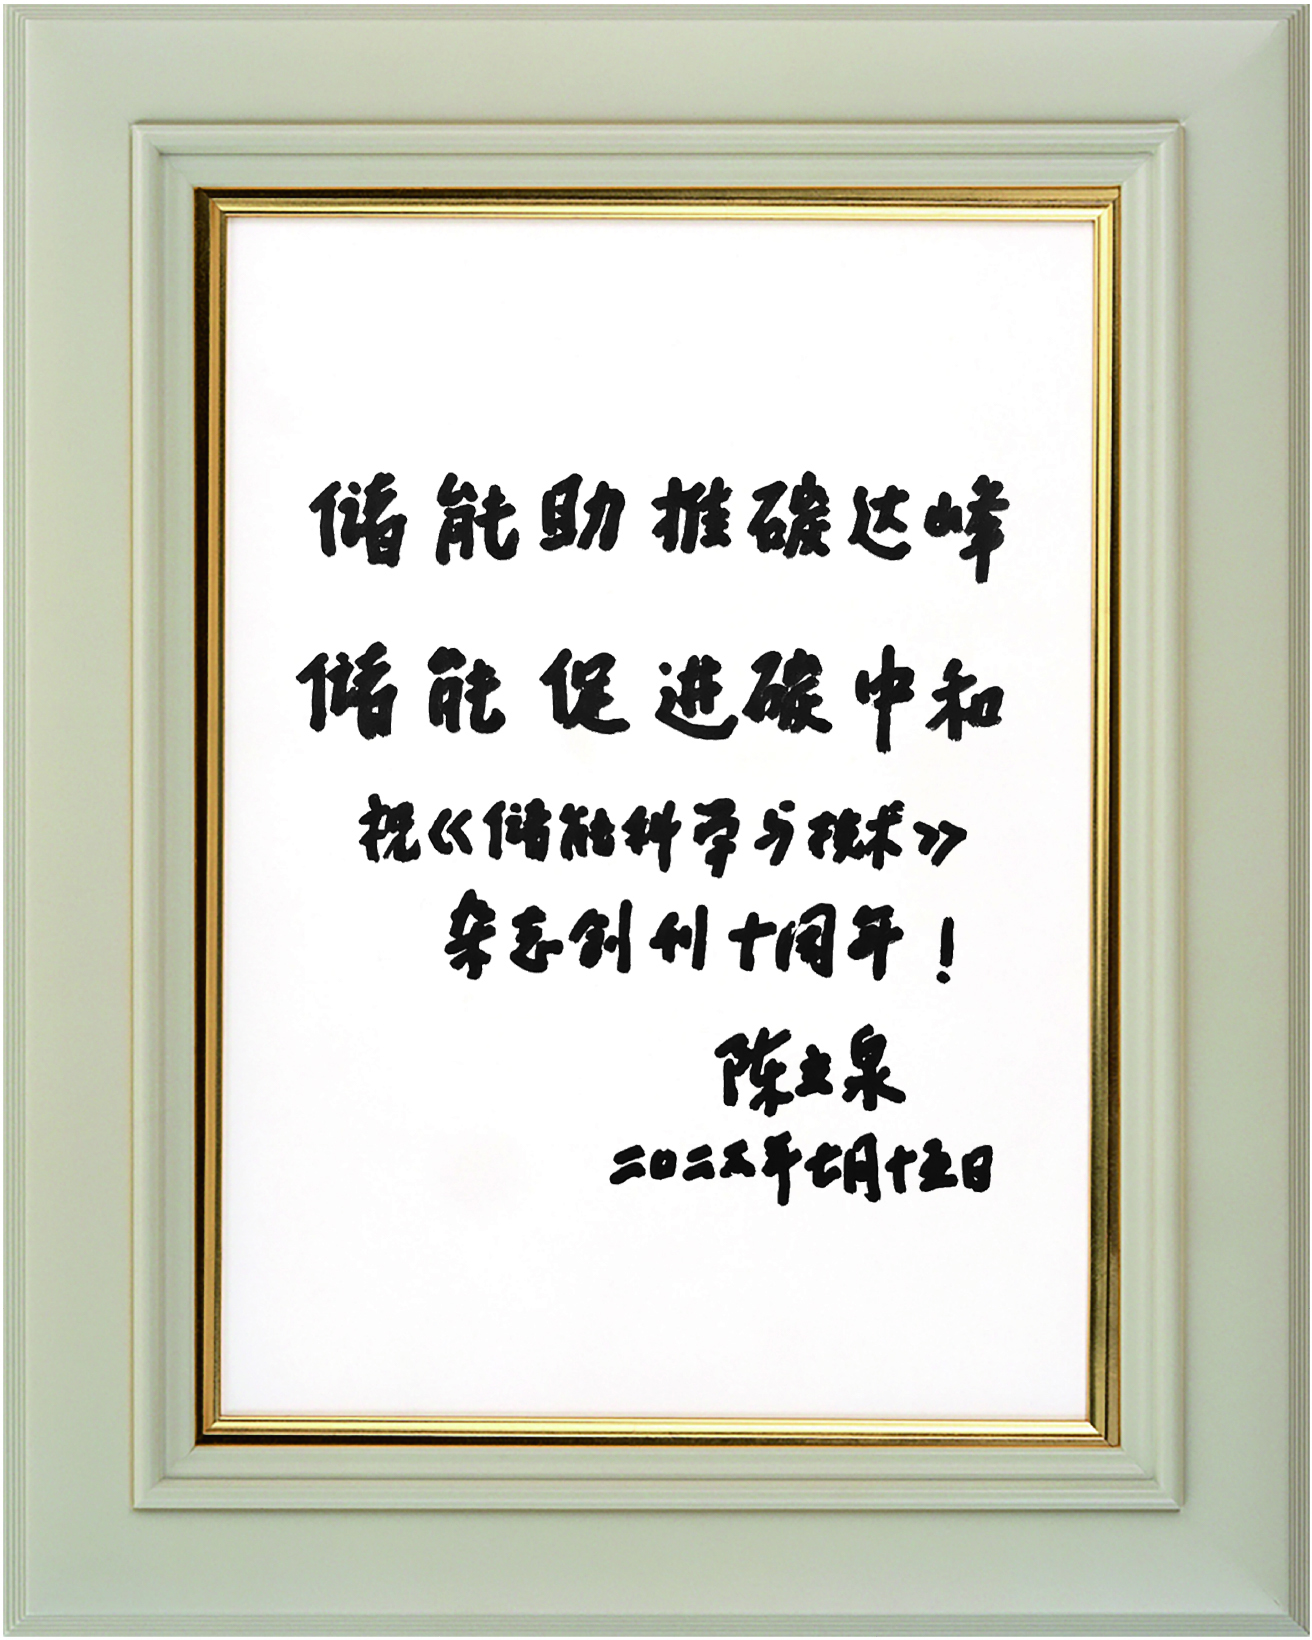 储能助推碳达峰
储能促进碳中和
祝《储能科学与技术》
杂志创刊十周年！
陈立泉
年七月十五日